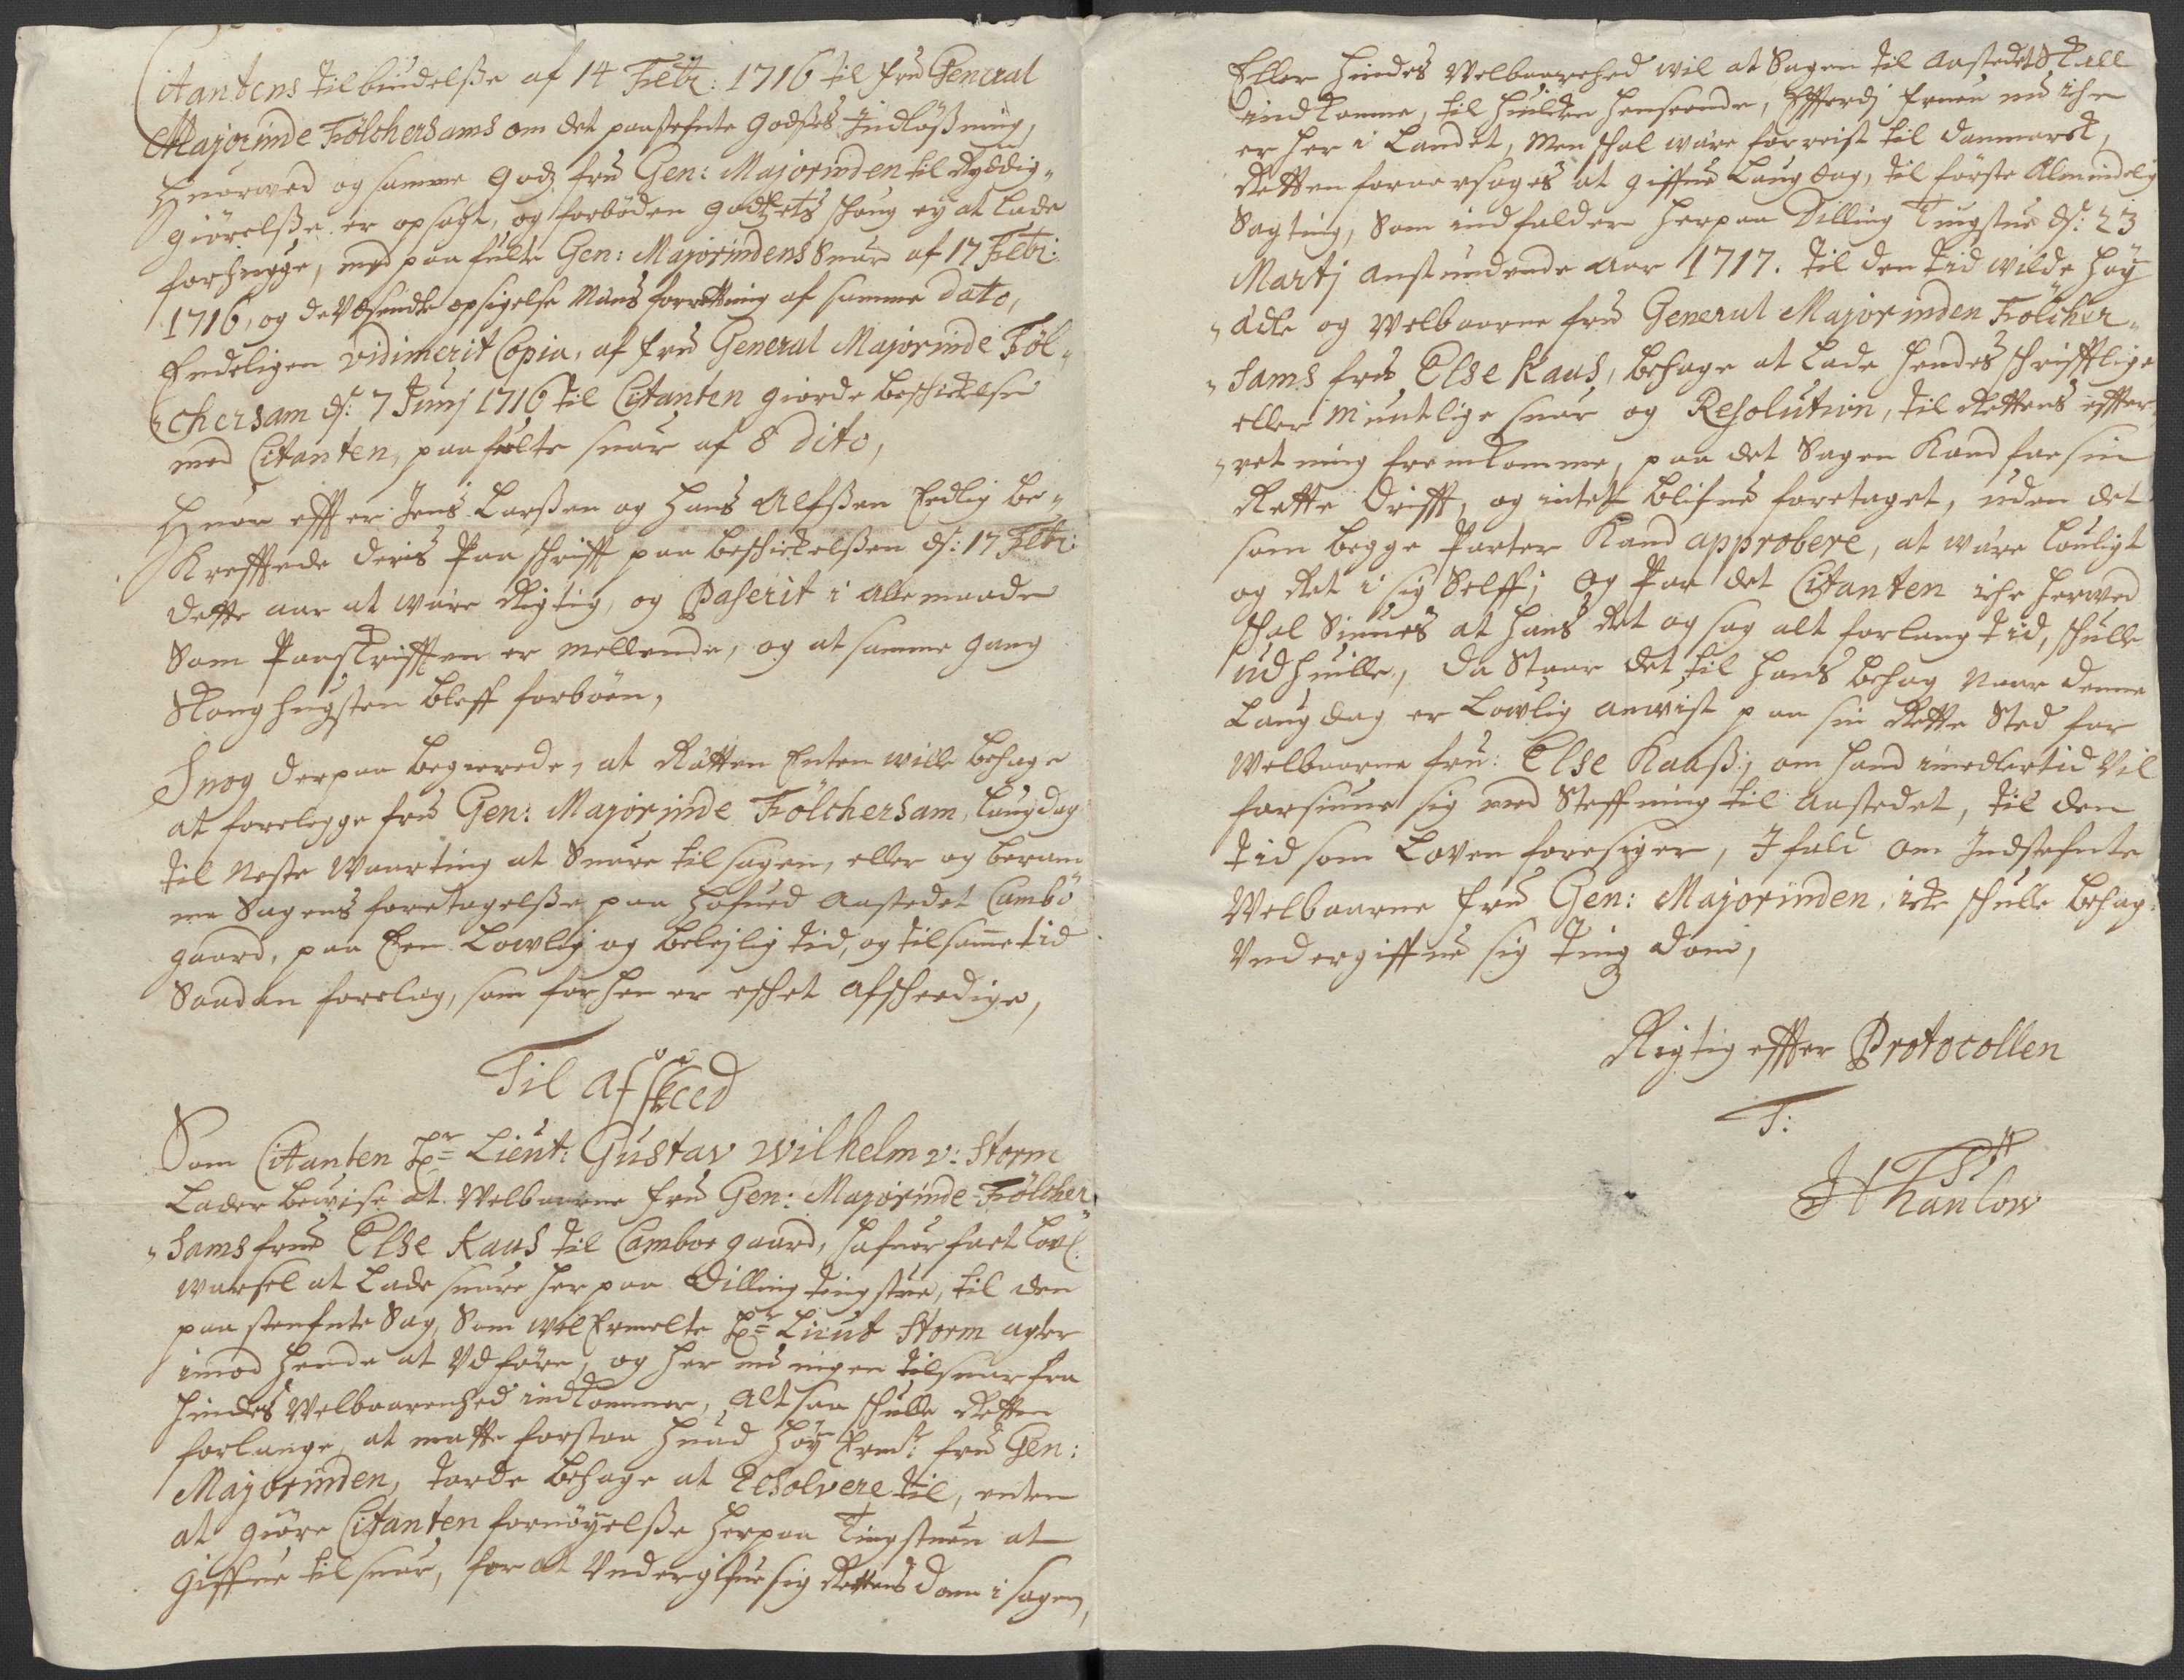 Citantens tilbudelsse af 14 Febr: 1716 til fru General
Majorinde Fölchersams om det paastefnte Godses Indlössning,
Huorved og samme Gods fru Gen: Majorinden til Ryddig„
giörelsse er opsagt, og forböden Godtzets skoug ey at lade
forhugge, med paafulte Gen: Majorindens Suar af 17 Febr:
1716, og de Udsendte opsigelse Mæns forretning af samme dato,
Endeligen vidimerit Copia, af fru General Majorinde Föl„
„chersam ds: 7 Junj 1716 til Citanten giorde beskickelse
med Citanten, paafulte suar af 8 dito,
Huor effter Jens Larssen og Hans Alfssen Eedlig be„
kreffttede deris Paaskrifft paa beskickelssen ds: 17 Febr:
dette aar at være Rigtig, og Passerit i alle maader
Som Paaskrifften er mellende, og at samme gang
Skoughugsten bleff forböen,
Snog derpaa begierede, at Rætten Enten wille behage
at forelegge fru Gen: Majorinde Fölchersam, laugdag
til Neste Waarting at Suare til sagen, eller og beram
me Sagens foretagelsse paa Hofued Aastedet Cambö
gaard, paa Een Lowlig og belejlig tid, og til samme tid
Saadan forelæg, som forhen er eschet afskeedige,
Til afskeed
Som Citanten Hr= Lieut: Gustav Wilhelm v: Storm
Lader bewise at Welbaarne fru Gen: Majorinde Fölcher„
„sams frue Else Kaas til Camboe gaard, hafuer faaet Lovl:
warsel at lade suare her paa Dilling tingstue, til den
paa stefnte Sag, Som welErmelte Hr= Lieut Storm agter
imod Hende at Udföre, og her nu ingen tilsuar fra
Hindes Welbaarenhed indkommer, Altsaa skulle Retten
forlange, at maatte forstaa huad HöyErmte: fru Gen:
Majorinden, torde behage at Resolvere til, enten
at giöre Citanten fornöyelsse herpaa Tingstuen at
giffue til suar, for at Undergifue sig Rettens dom i sagen,
Eller Hindes Welbaarehed wil at Sagen til Aastedet skall
indkomme, til huilken henseende, Efferdj Fruen nu iche
er her i Landet, men skal være forreist til Danmarck,
Retten foraarsages at giffue Laugdag, til förste Almindelig
Sagting, Som indfalder herpaa Dilling Tingstue ds: 23
Martj anstundende Aar 1717. til den tid wilde Höy
„ædle og Welbaarne fru General Majorinden Fölcher„
„sams frue Else Kaas, behage at lade Hendes skrifftlige
eller Muntlige suar og Resolution, til Rettens effter„
„retning fremkomme, paa det Sagen kand faa sin
Rette Drifft, og intet blifue foretaget, uden det
som begge Parter kand approbere, at være louligt
og Ret i sig Selff; Og Paa det Citanten iche herved
skal Sinnes at hans Ret og sag alt forlang tid, skulle
udhuille, da Staar det til hans behag naar denne
Laugdag er Lowlig anwist paa sin Rette Sted for
Welbaarne fru: Else Kaass, om hand imedlertid Vil
forsiune sig med Steffning til Aastedet, til den
tid som Loven foresiger, Ifald om Indstefnte
Welbaarne fru Gen: Majorinden, icke skulle behag:
Undergiffue sig Ting dom,
Rigtig effter Protocollen
T:
JHThanlow